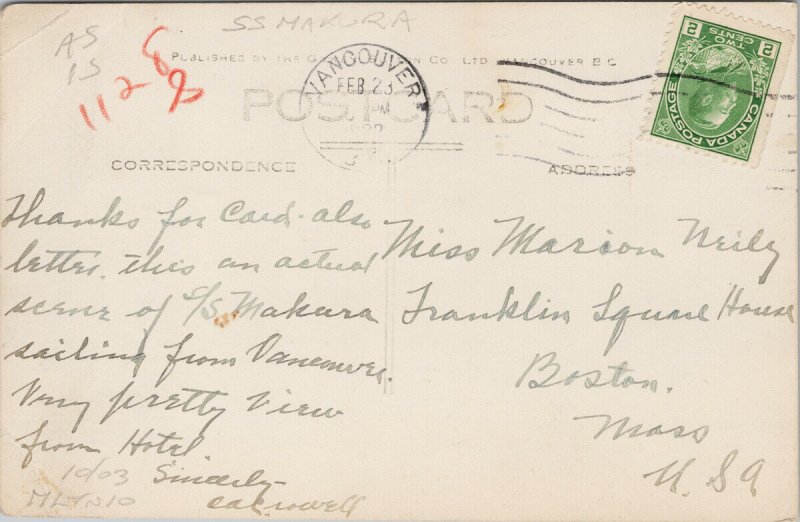 SS MAKURA
AS
IS
1128
PUBLISHED BY THE CO. LTD. VANCOUVER B.C.
POST CARD
VANCOUVER
FEB 23
PM
CANADA POSTAGE
TWO CENTS
2 2
CORRESPONDENCE
ADDRESS
Thanks for Card also
letter. this an actual
scene of S/S. Makura
sailing from Vancouver.
Very pretty view
from Hotel
Sincerely
Miss Marion Neily
Franklin Square House
Boston.
Mass
U. S A
10/03